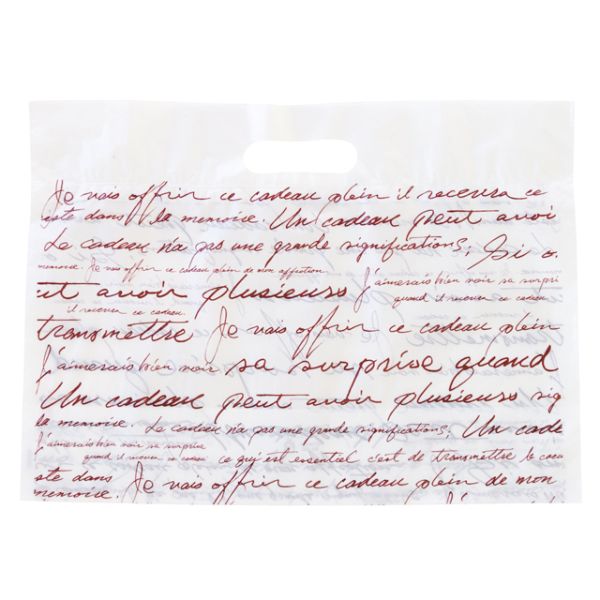 Je vais offrir ce cadeau plein il recevra ce
este dans la memoire. Un cadeau peut avoi
Le cadeau n'a pas une grande significations; Si o.
memoire. Je vais offrir ce cadeau plein de mon affection.
j'aimerais bien voir sa surpri
ut avoir plusieurs
quand il recever ce cadeau.
il recever ce cadeau.
transmettre Je vais offrir ce cadeau plein
j'aimerais bien voir sa surprise quand
Un cadeau peut avoir plusieurs sig
la memoire. Le cadeau n'a pas une grande significations; Un cade
j'aimerais bien voir sa surprise
quand il recever ce cadeau ce qui est essentiel c'est de transmettre le
ste dans Je vais offrir ce cadeau plein de mon
memoire.